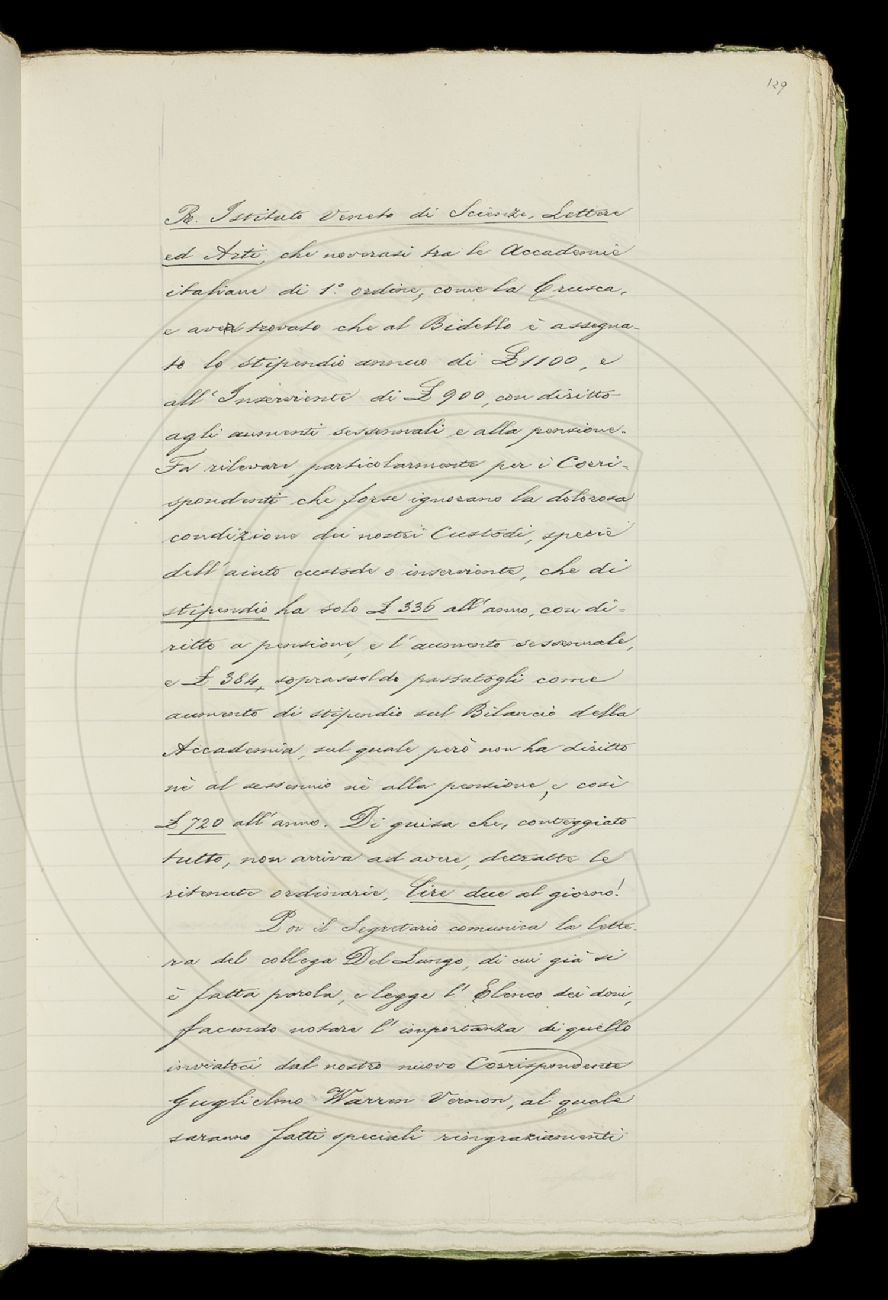 129
R. Istituto Veneto di Scienze, Lettere
ed Arti, che noverasi tra le Accademie
italiane di 1.° ordine, come la Crusca,
e aver trovato che al Bidello è assegna-
to lo stipendio annuo di £ 1100, e
all'Inserviente di £ 900, con diritto
agli aumenti sessennali e alla pensione.
Fa rilevare, particolarmente per i Corri-
spondenti che forse ignorano la dolorosa
condizione dei nostri Custodi, specie
dell'aiuto custode o inserviente, che di
stipendio ha solo £ 336 all'anno, con di-
ritto a pensione, e l'aumento sessennale,
e £ 384, soprassoldo passatogli come
aumento di stipendio sul Bilancio della
Accademia, sul quale però non ha diritto
nè al sessennio nè alla pensione, e così
£ 720 all'anno. Di guisa che, conteggiato
tutto, non arriva ad avere, detratte le
ritenute ordinarie, lire due al giorno!
Poi il Segretario comunica la lette-
ra del collega Del Lungo, di cui già si
è fatta parola, e legge l'Elenco dei doni,
facendo notare l'importanza di quello
inviatoci dal nostro nuovo Corrispondente
Guglielmo Warren Vernon, al quale
saranno fatti speciali ringraziamenti